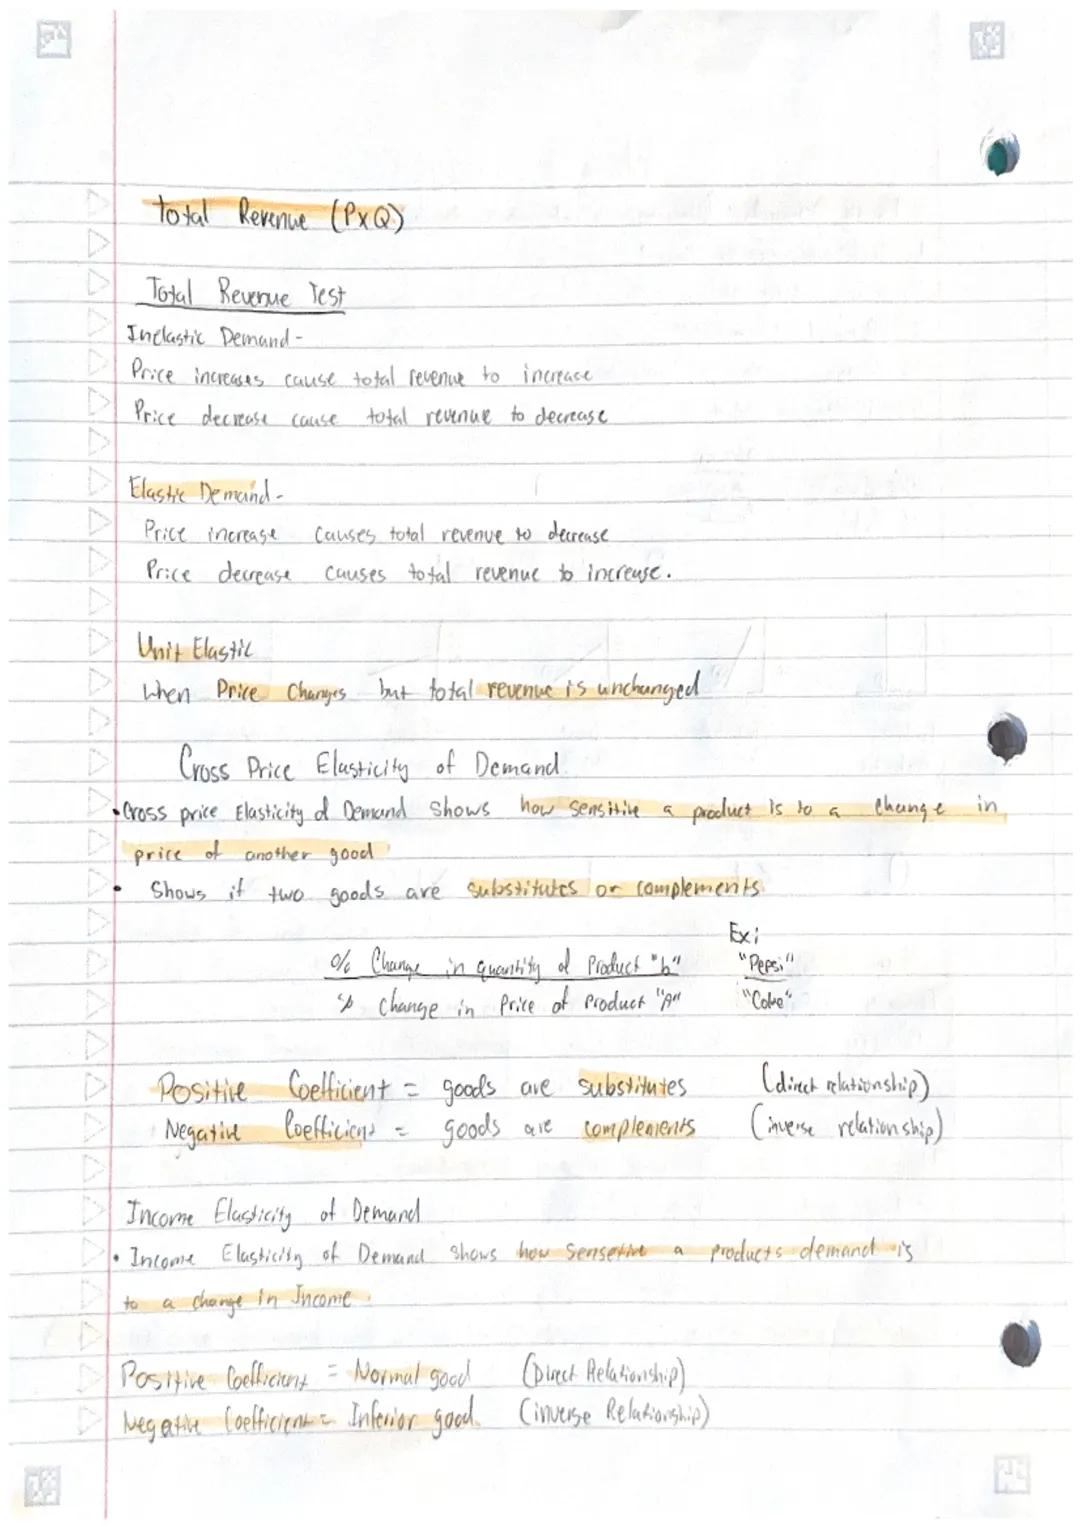 Total Revenue (PxQ)
Total Revenue Test
Inelastic Demand -
Price increases cause total revenue to increase
Price decrease cause total revenue to decrease
Elastic Demand -
Price increase causes total revenue to decrease
Price decrease causes total revenue to increase.
Unit Elastic
When Price Changes but total revenue is unchanged
Cross Price Elasticity of Demand
• Cross price Elasticity of Demand Shows how sensitive a product is to a change in
price of another good
• Shows if two goods are substitutes or complements
Ex:
% Change in quantity of Product "b" "Pepsi"
% Change in Price of Product "A" "Coke"
Positive Coefficient = goods are substitutes (direct relationship)
Negative Coefficient = goods are complements (inverse relationship)
Income Elasticity of Demand
• Income Elasticity of Demand Shows how Sensetive a products demand is
to a change in Income.
Positive Coefficient = Normal good (Direct Relationship)
Negative Coefficient = Inferior good. (inverse Relationship)